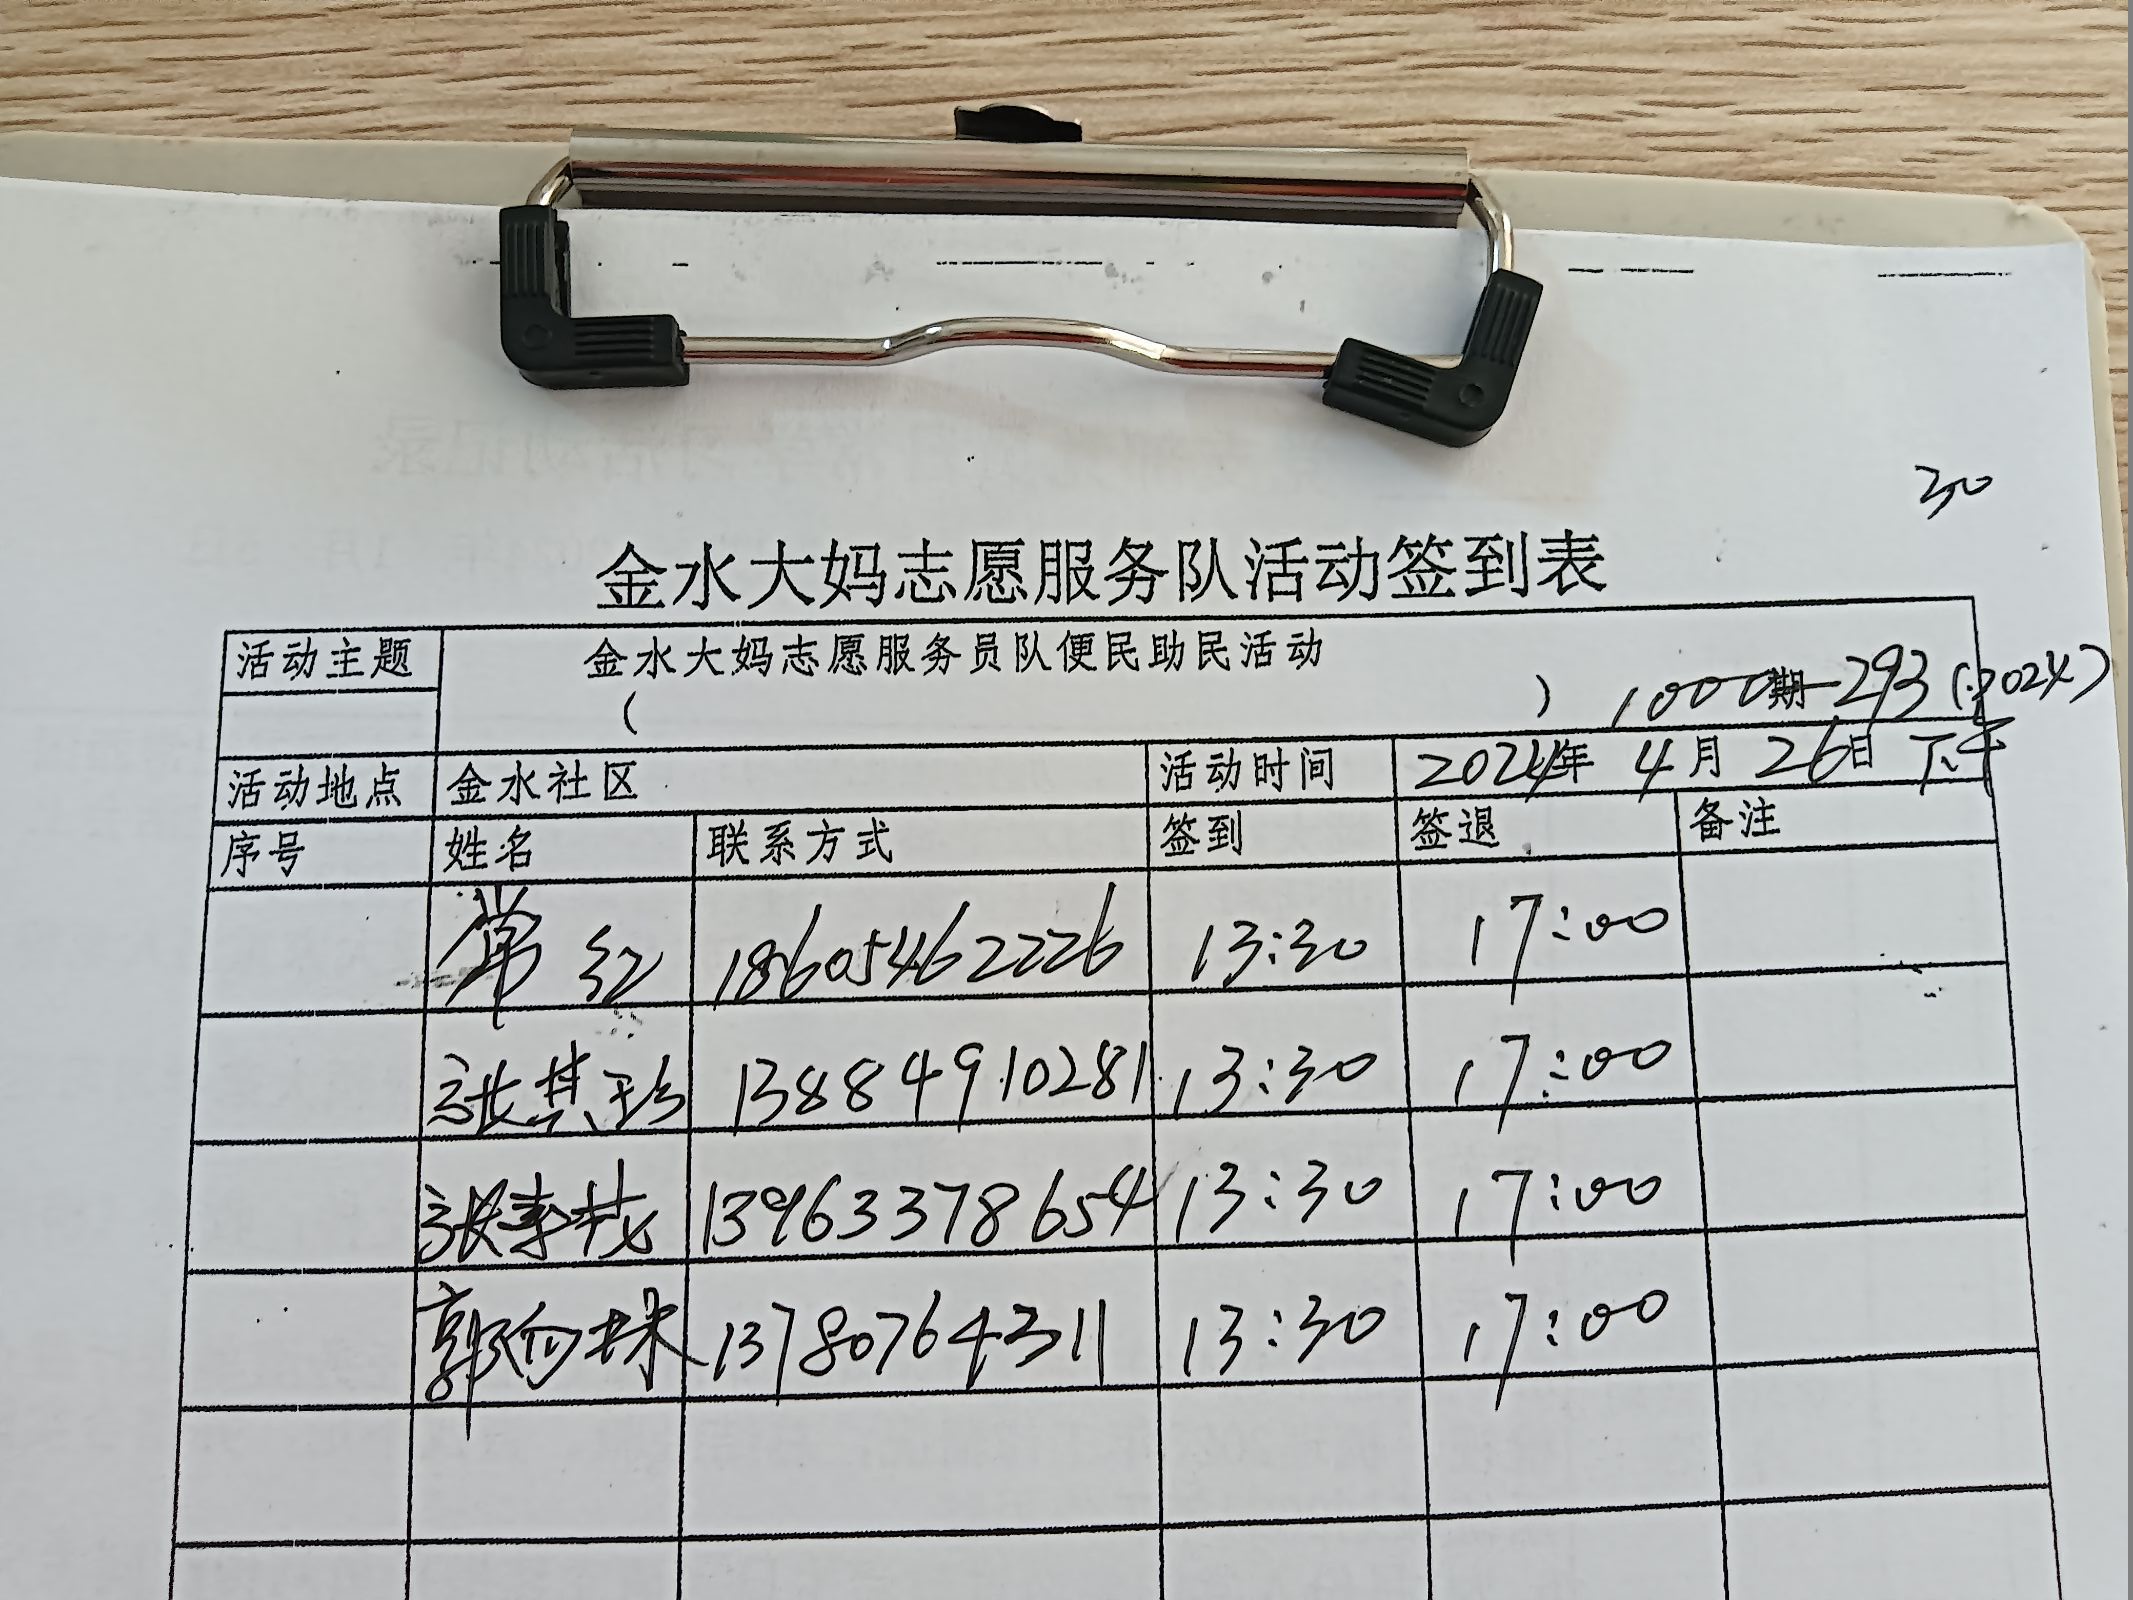 30
金水大妈志愿服务队活动签到表
活动主题 金水大妈志愿服务员队便民助民活动
( ) 1000期-293(2024)
活动地点 金水社区 活动时间 2024年 4月 26日 下午
序号 姓名 联系方式 签到 签退 备注
常红 18605462226 13:30 17:00
张其珍 13884910281 13:30 17:00
13963378654 13:30 17:00
郭向珠 13780764311 13:30 17:00